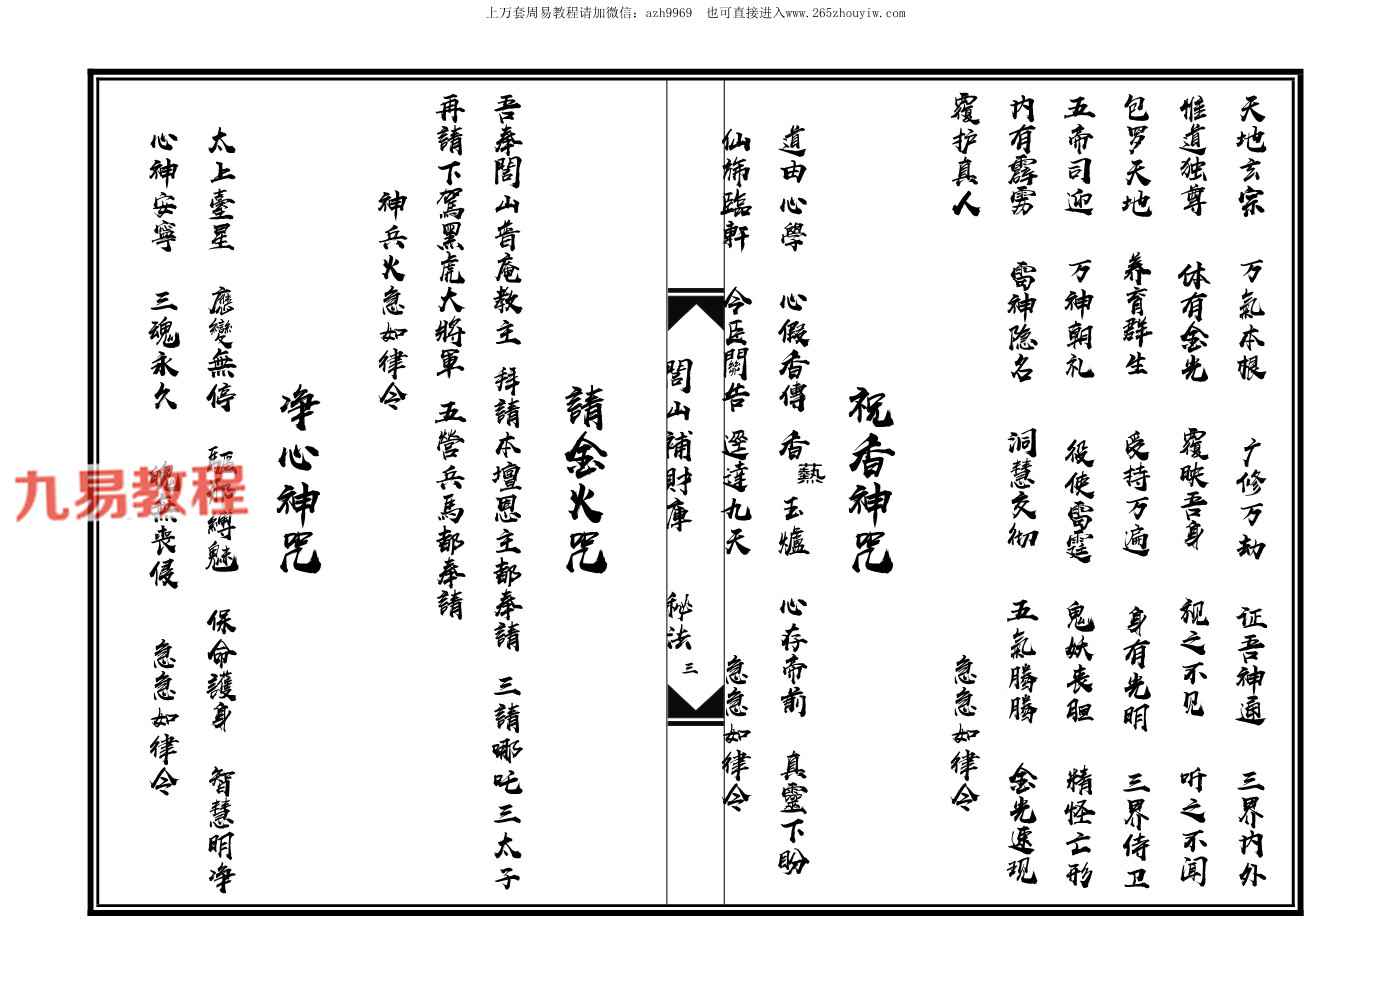 上万套周易教程请加微信：azh9969　也可直接进入www.265zhouyiw.com
天地玄宗　万氣本根　广修万劫　证吾神通　三界内外
惟道独尊　体有金光　覆映吾身　视之不见　听之不闻
包罗天地　养育群生　受持万遍　身有光明　三界侍卫
五帝司迎　万神朝礼　役使雷霆　鬼妖丧胆　精怪亡形
内有霹雳　雷神隐名　洞慧交彻　五氣腾腾　金光速现
覆护真人　急急如律令
祝香神咒
道由心學　心假香傳　香爇玉爐　心存帝前　真靈下盼
仙旆臨軒　今臣關告　逕達九天　急急如律令
閭山補財庫　秘法
三
請金火咒
吾奉閭山普庵教主　拜請本壇恩主都奉請　三請哪吒三太子
再請下駕黑虎大將軍　五營兵馬都奉請
神兵火急如律令
净心神咒
太上臺星　應變無停　驅邪縛魅　保命護身　智慧明净
心神安寧　三魂永久　魄無喪侵　急急如律令
九易教程